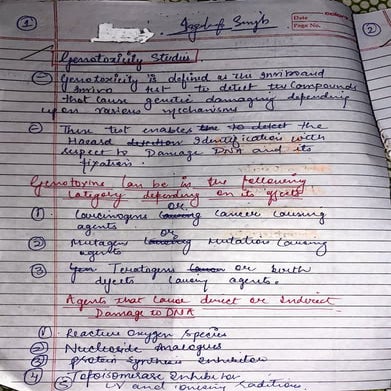 ①
Singh
Date
Page No.
②
Genotoxicity Studies
Genotoxicity is defined as the Invitro and
Invivo test to detect the Compounds
that cause genetic damaging depending
upon various mechanisms
These test enables the to detect the
Hazard detection Identification with
respect to Damage DNA and its
fixation.
Genotoxins can be in the following
category depending on its effects
① Carcinogens or causing cancer causing
agents
② Mutagen or causing Mutation Causing
agents
③ Teratogens or birth
defects causing agents.
Agents that cause direct or Indirect
Damage to DNA
① Reactive Oxygen Species
② Nucleoside Analogues
③ protein Synthesis Inhibitor
④ Topoisomerase Inhibitor
⑤ UV and ionising radiations